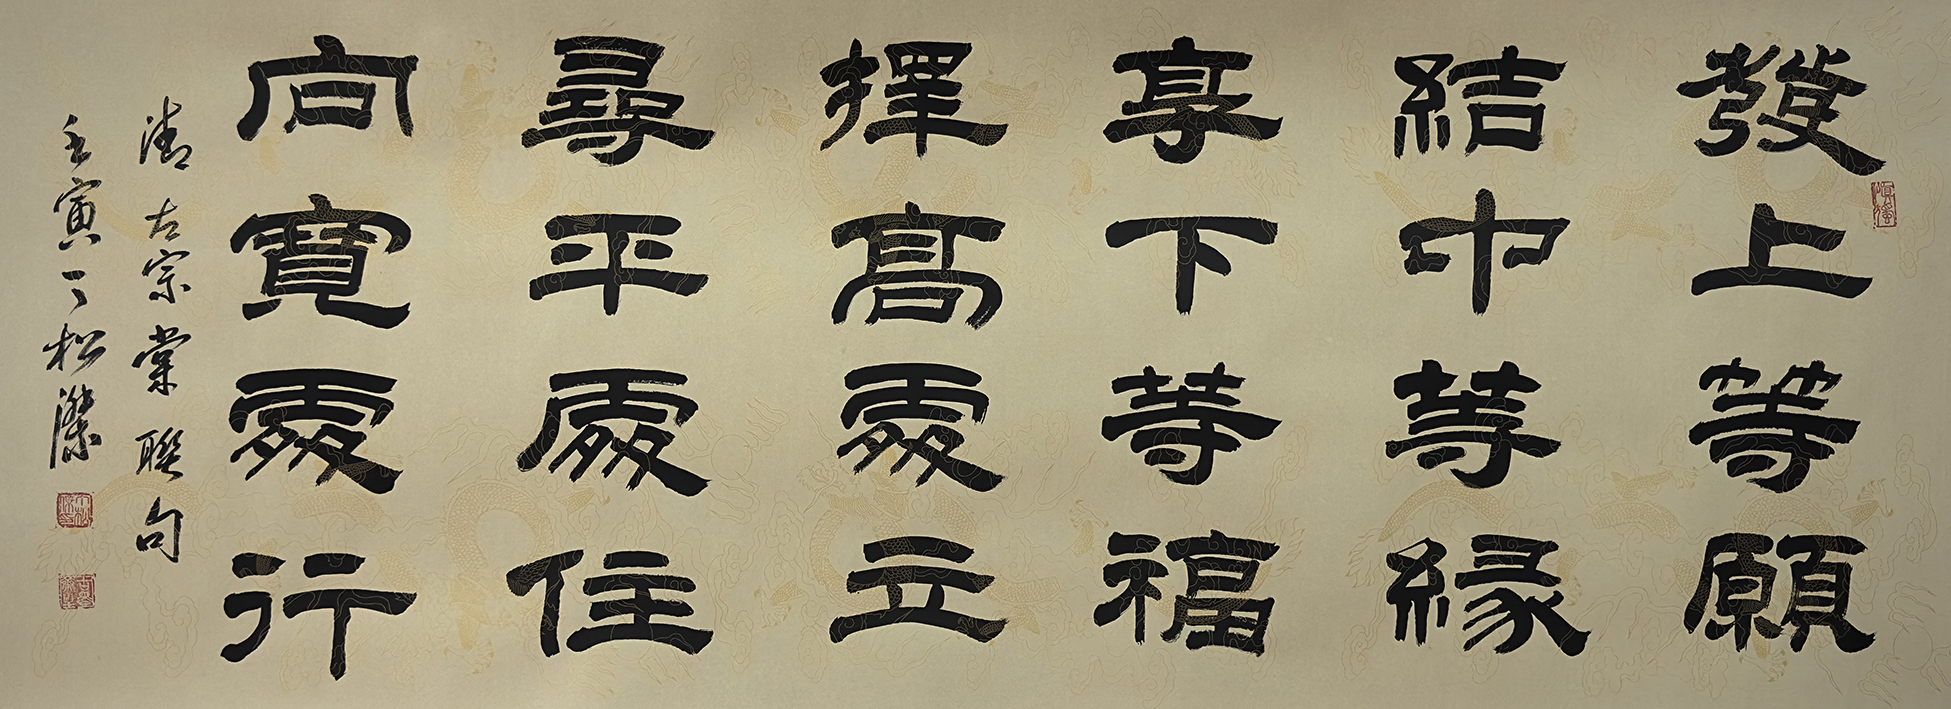 發上等願
慎獨
結中等緣
享下等福
擇高處立
尋平處住
向寬處行
清左宗棠聯句
壬寅丁松